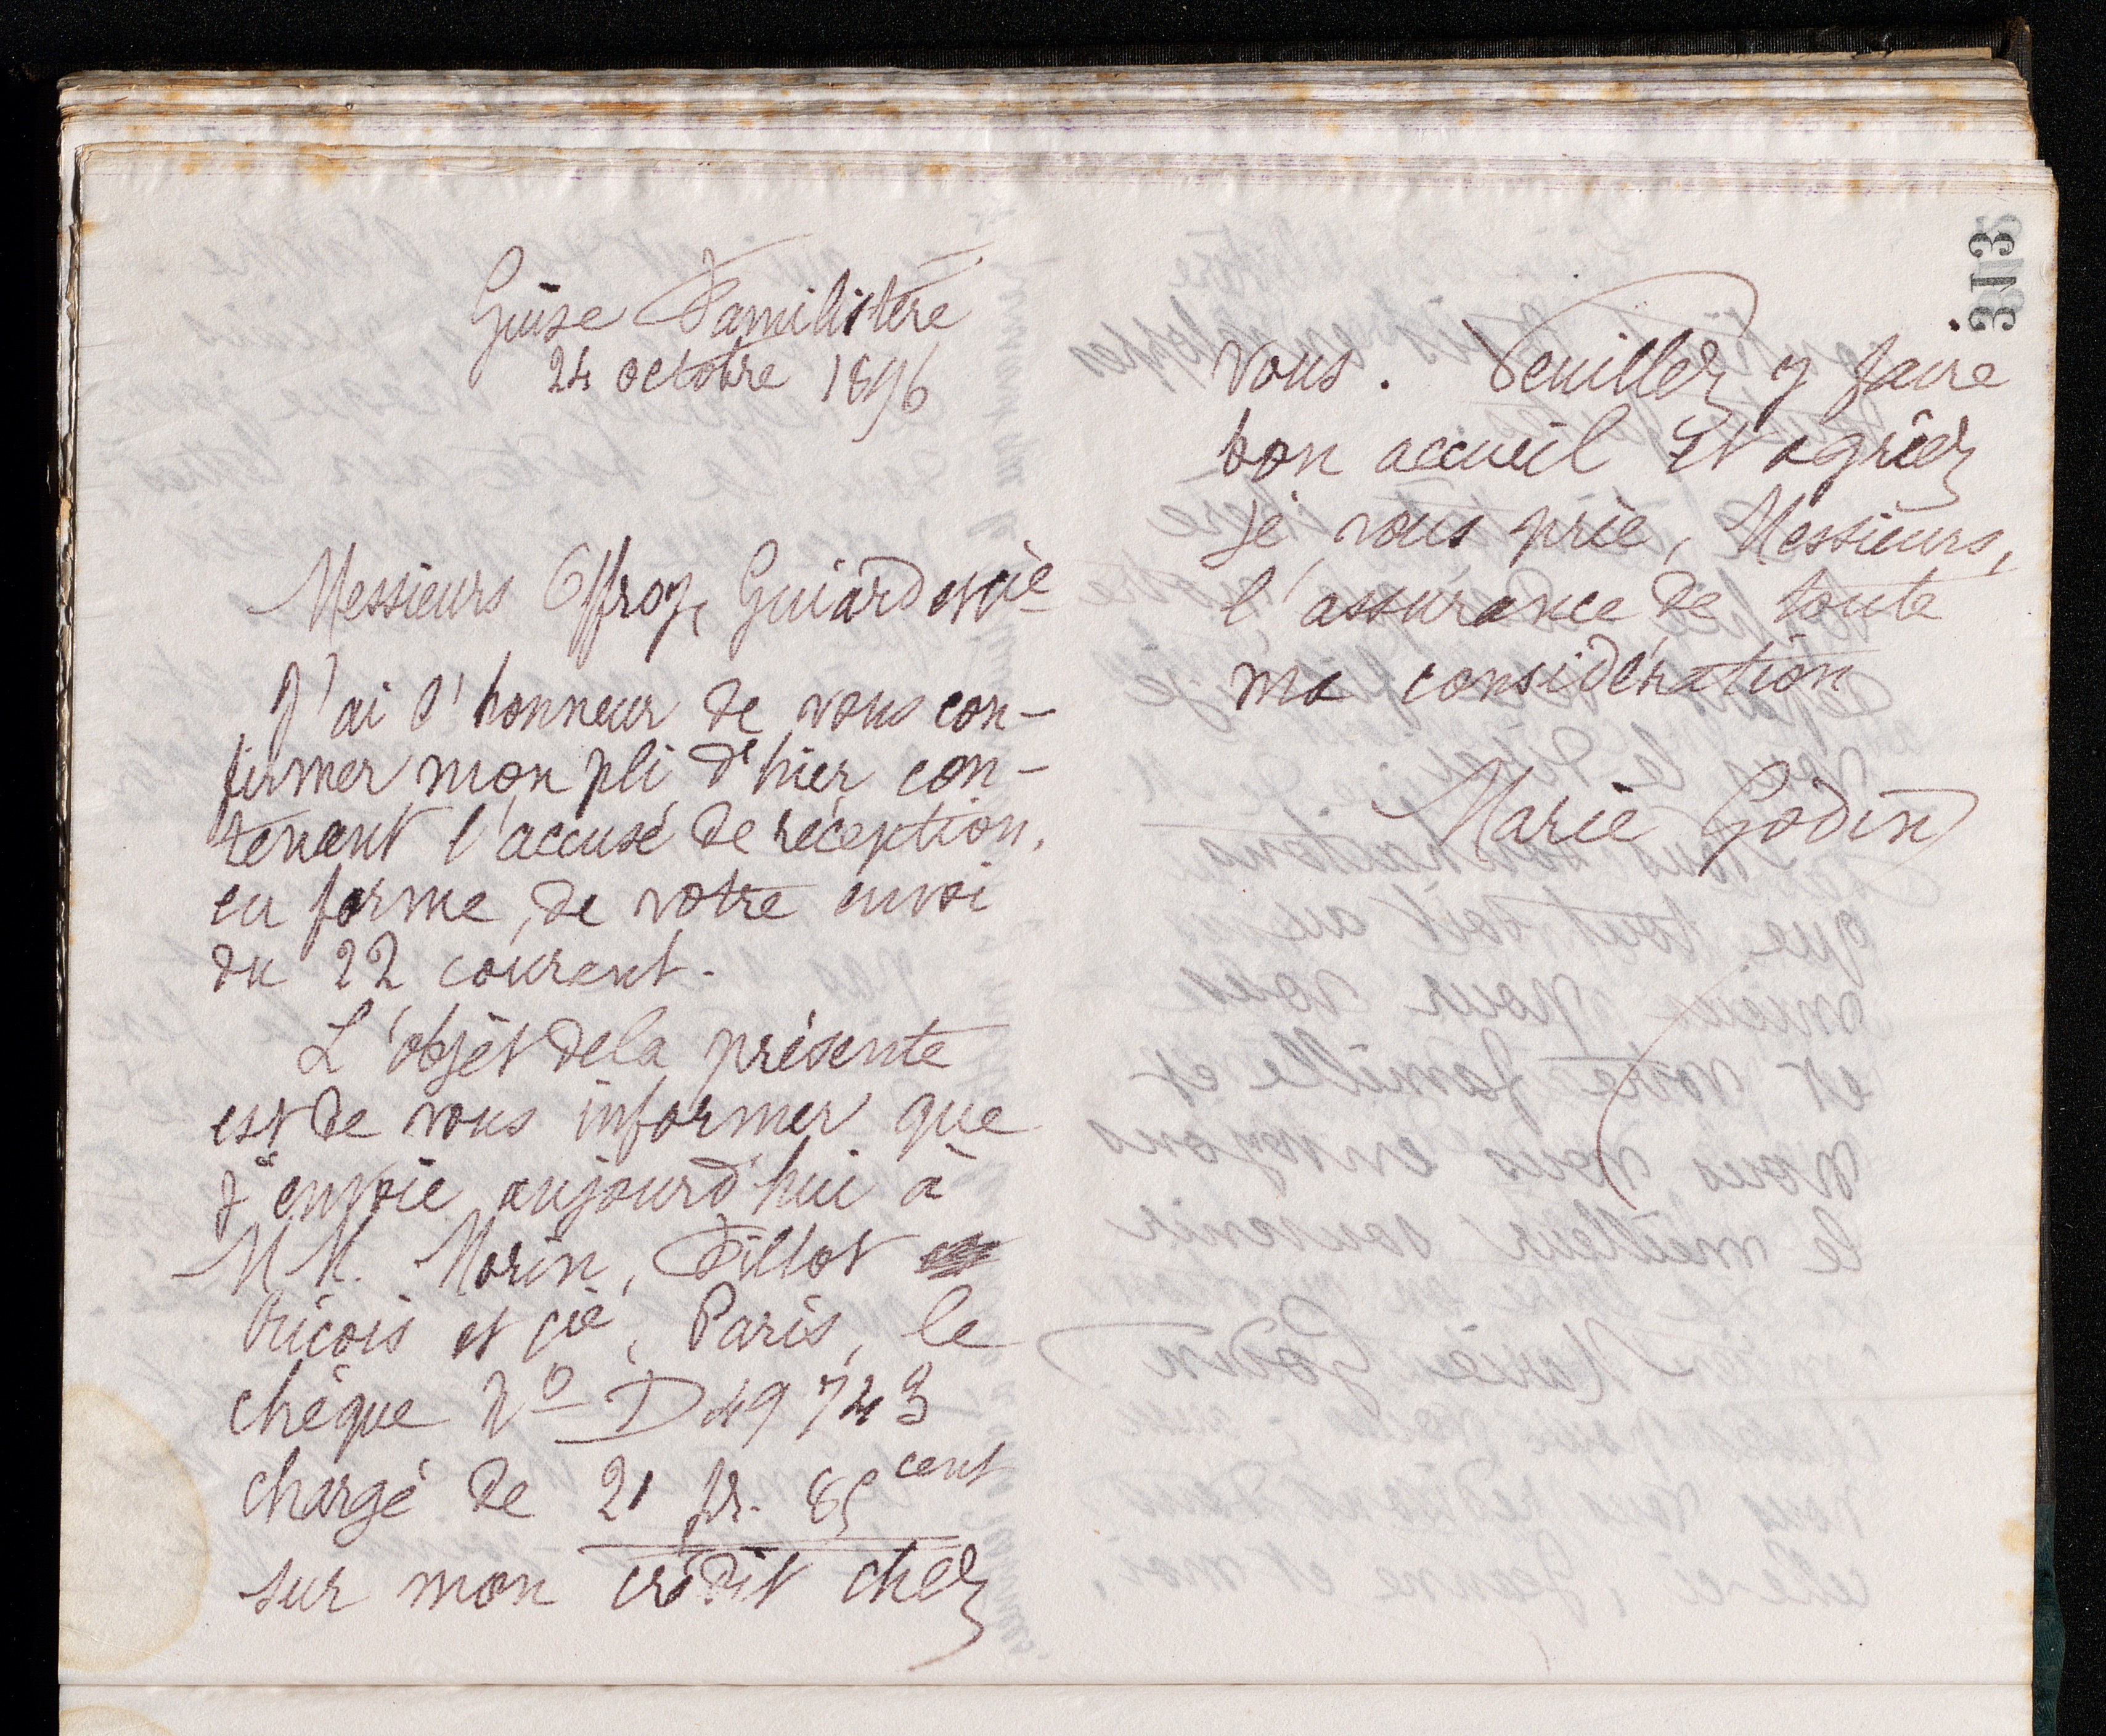 Guise Familistère
24 octobre 1896
Messieurs Offroy, Guiard et cie
J'ai l'honneur de vous con-
firmer mon pli d'hier con-
tenant l'accusé de réception,
en forme, de votre envoi
du 22 courant.
L'objet de la présente
est de vous informer que
j'envoie aujourd'hui à
MM. Morin, Fillot
Ricois et cie, Paris, le
chèque No D 49743
chargé de 21 fr. 85 cent
sur mon crédit chez
313
vous. Veuillez y faire
bon accueil et agréez
je vous prie, Messieurs,
l'assurance de toute
ma considération
Marie Godin